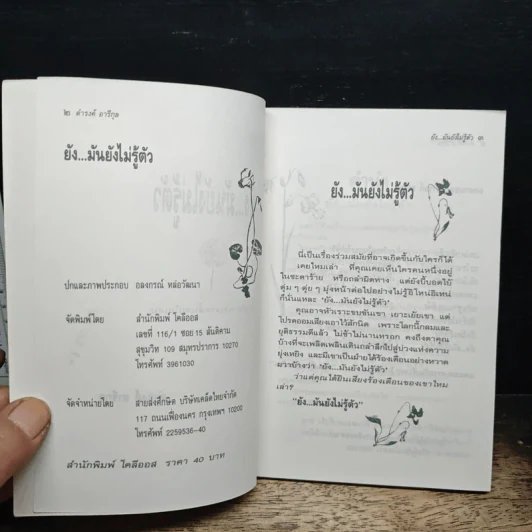 ๒ ดำรงค์ อารีกุล
ยัง...มันยังไม่รู้ตัว
ปกและภาพประกอบ อลงกรณ์ หล่อวัฒนา
จัดพิมพ์โดย สำนักพิมพ์ ไคลีออส
เลขที่ 116/1 ซอย 15 สันติคาม
สุขุมวิท 109 สมุทรปราการ 10270
โทรศัพท์ 3961030
จัดจำหน่ายโดย สายส่งศึกษิต บริษัทเคล็ดไทยจำกัด
117 ถนนเฟื่องนคร กรุงเทพฯ 10200
โทรศัพท์ 2259536-40
สำนักพิมพ์ ไคลีออส ราคา 40 บาท
ยัง...มันยังไม่รู้ตัว ๓
ยัง...มันยังไม่รู้ตัว
นี่เป็นเรื่องร่วมสมัยที่อาจเกิดขึ้นกับใครก็ได้
เคยไหมเล่า ที่คุณเคยเห็นใครคนหนึ่งอยู่
ในชะตาร้าย หรือถลำผิดทาง แต่ยังปี้บอดใบ้
ตุ่ม ๆ ตุ่ย ๆ มุ่งหน้าต่อไปอย่างไม่รู้อิโหน่อิเหน่
ก็นั่นแหละ "ยัง...มันยังไม่รู้ตัว"
คุณอาจหัวเราะขบขันเขา เยาะเย้ยเขา แต่
โปรดออมเสียงเอาไว้สักนิด เพราะโลกนี้กลมและ
ยุติธรรมดีแล้ว ไม่ช้าไม่นานหรอก คงถึงตาคุณ
บ้างที่จะเพลิดเพลินเดินถลำลึกไปสู่บ่วงแห่งความ
ยุ่งเหยิง และมีเขาเป็นฝ่ายได้ร้องเตือนอย่างหวาด
ผวาบ้างว่า "ยัง...มันยังไม่รู้ตัว"
ว่าแต่คุณได้ยินเสียงร้องเตือนของเขาไหม
เล่า?
"ยัง...มันยังไม่รู้ตัว"